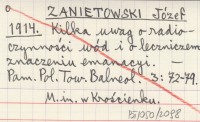 ZANIETOWSKI Józef
1914. Kilka uwag o radio-
czynności wód i o leczniczem
znaczeniu emanacyi. —
Pam. Pol. Tow. Balneol. 3: 72-79.
M. in. w Krościenku.